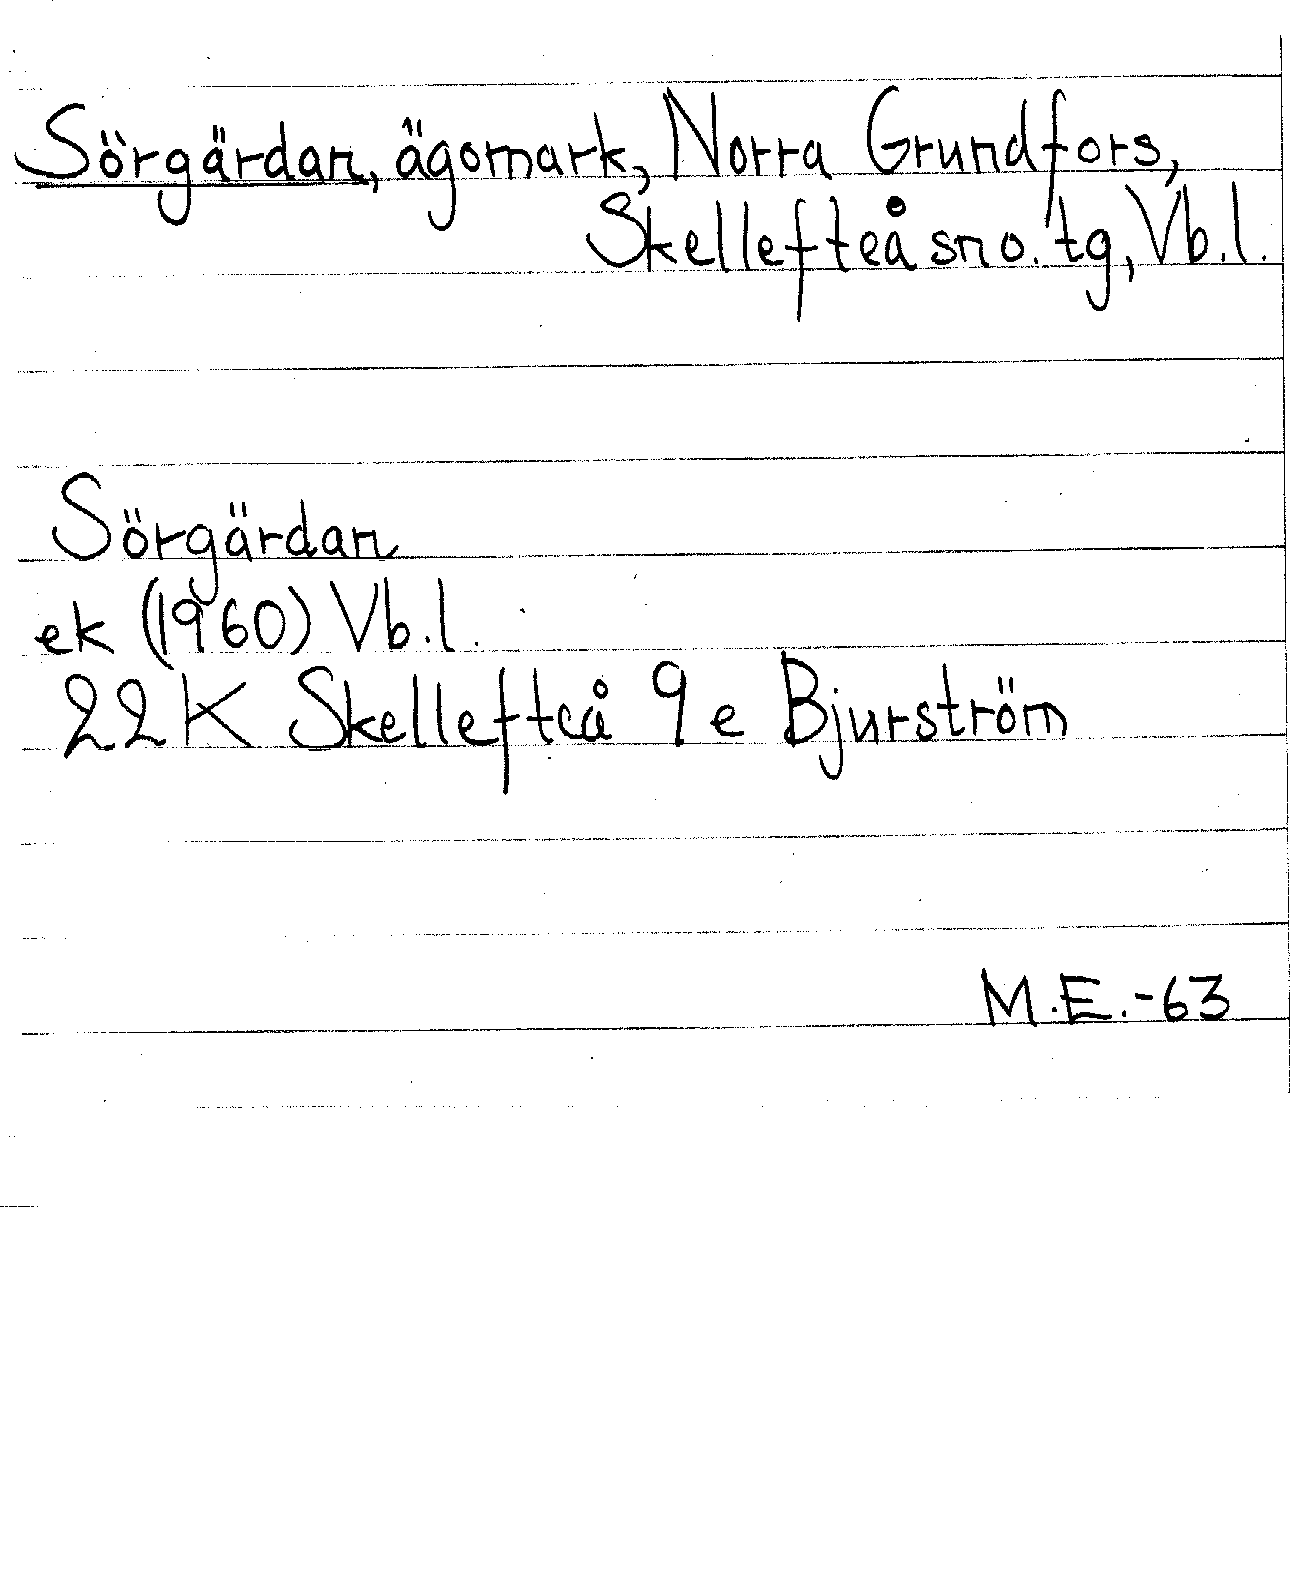 Sörgärdan, ägomark, Norra Grundfors,
Skellefteå sno. tg, Vb.l.
Sörgärdan
ek (1960) Vb.l.
22K Skellefteå 9e Bjurström
M.E.-63